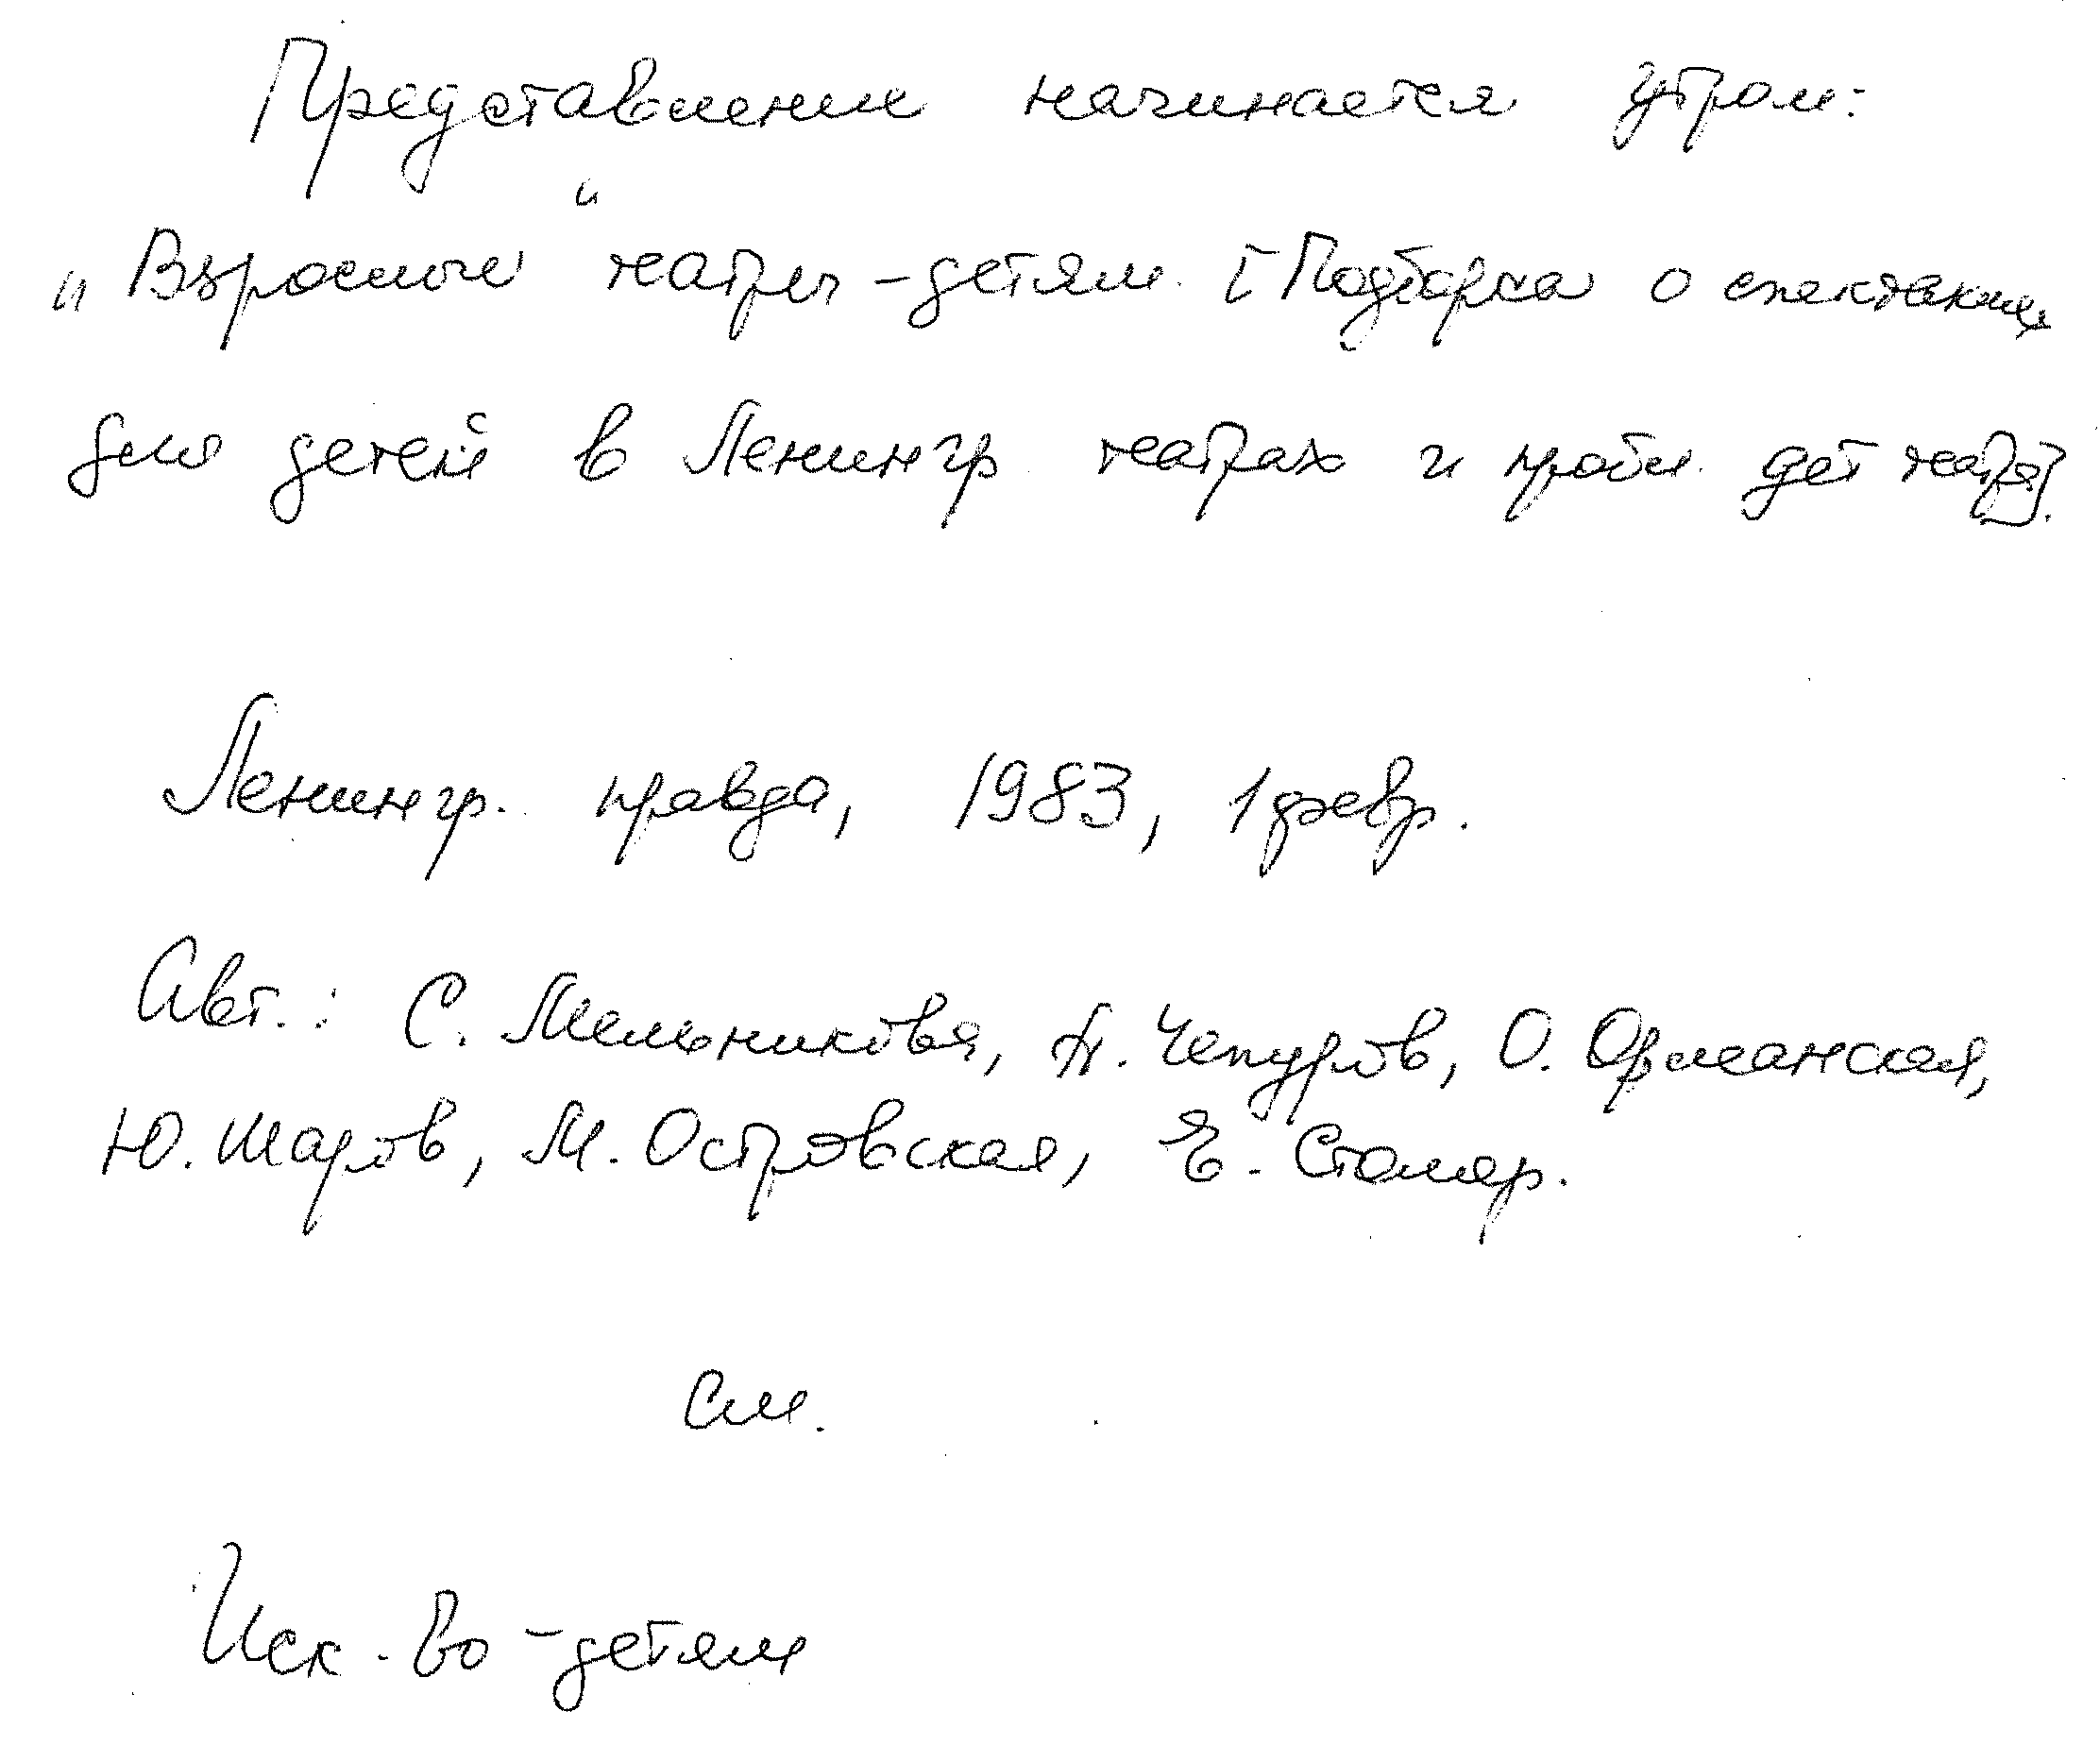 Представление начинается утром:
"Взрослые" театры - детям. [Подборка о спектаклях
для детей в Ленингр. театрах и пробл. дет театра].
Ленингр. правда, 1983, 1 февр.
Авт.: С. Мельникова, А. Чепуров, О. Орманская,
Ю. Шаров, М. Островская, Е. Столяр.
См.
Иск-во - детям